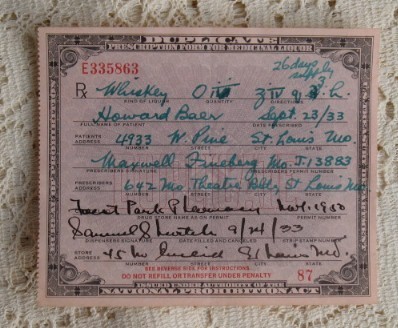 DUPLICATE
PRESCRIPTION FORM FOR MEDICINAL LIQUOR
E335863
26 days supply
Rx Whiskey O
KIND OF LIQUOR QUANTITY DIRECTIONS
Howard Baer Sept. 23/33
FULL NAME OF PATIENT DATE
PATIENTS ADDRESS 4933 W. Pine St. Louis Mo.
NUMBER STREET CITY STATE
Maxwell Fineberg Mo. J-13883
PRESCRIBERS SIGNATURE PRESCRIBERS PERMIT NUMBER
PRESCRIBERS ADDRESS 642 Mo Theatre Bldg, St Louis Mo.
NUMBER STREET CITY STATE
Forest Park Pharmacy
DRUG STORE NAME AS ON PERMIT PERMIT NUMBER
Samuel 9/24/33
DISPENSERS SIGNATURE DATE FILLED AND CANCELLED STRIP STAMP NUMBER
STORE ADDRESS 45 No Euclid St Louis Mo.
NUMBER STREET CITY STATE
SEE REVERSE SIDE FOR INSTRUCTIONS
DO NOT REFILL OR TRANSFER UNDER PENALTY
87
ISSUED UNDER AUTHORITY OF THE
NATIONAL PROHIBITION ACT